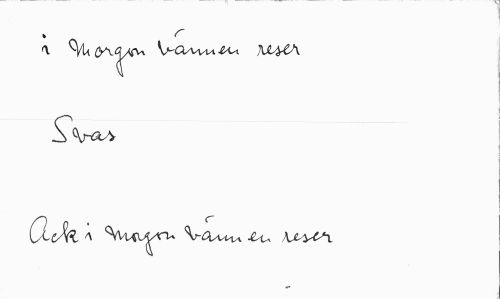 i Morgon Vännen reser
Svas
Ack i Morgon Vännen reser